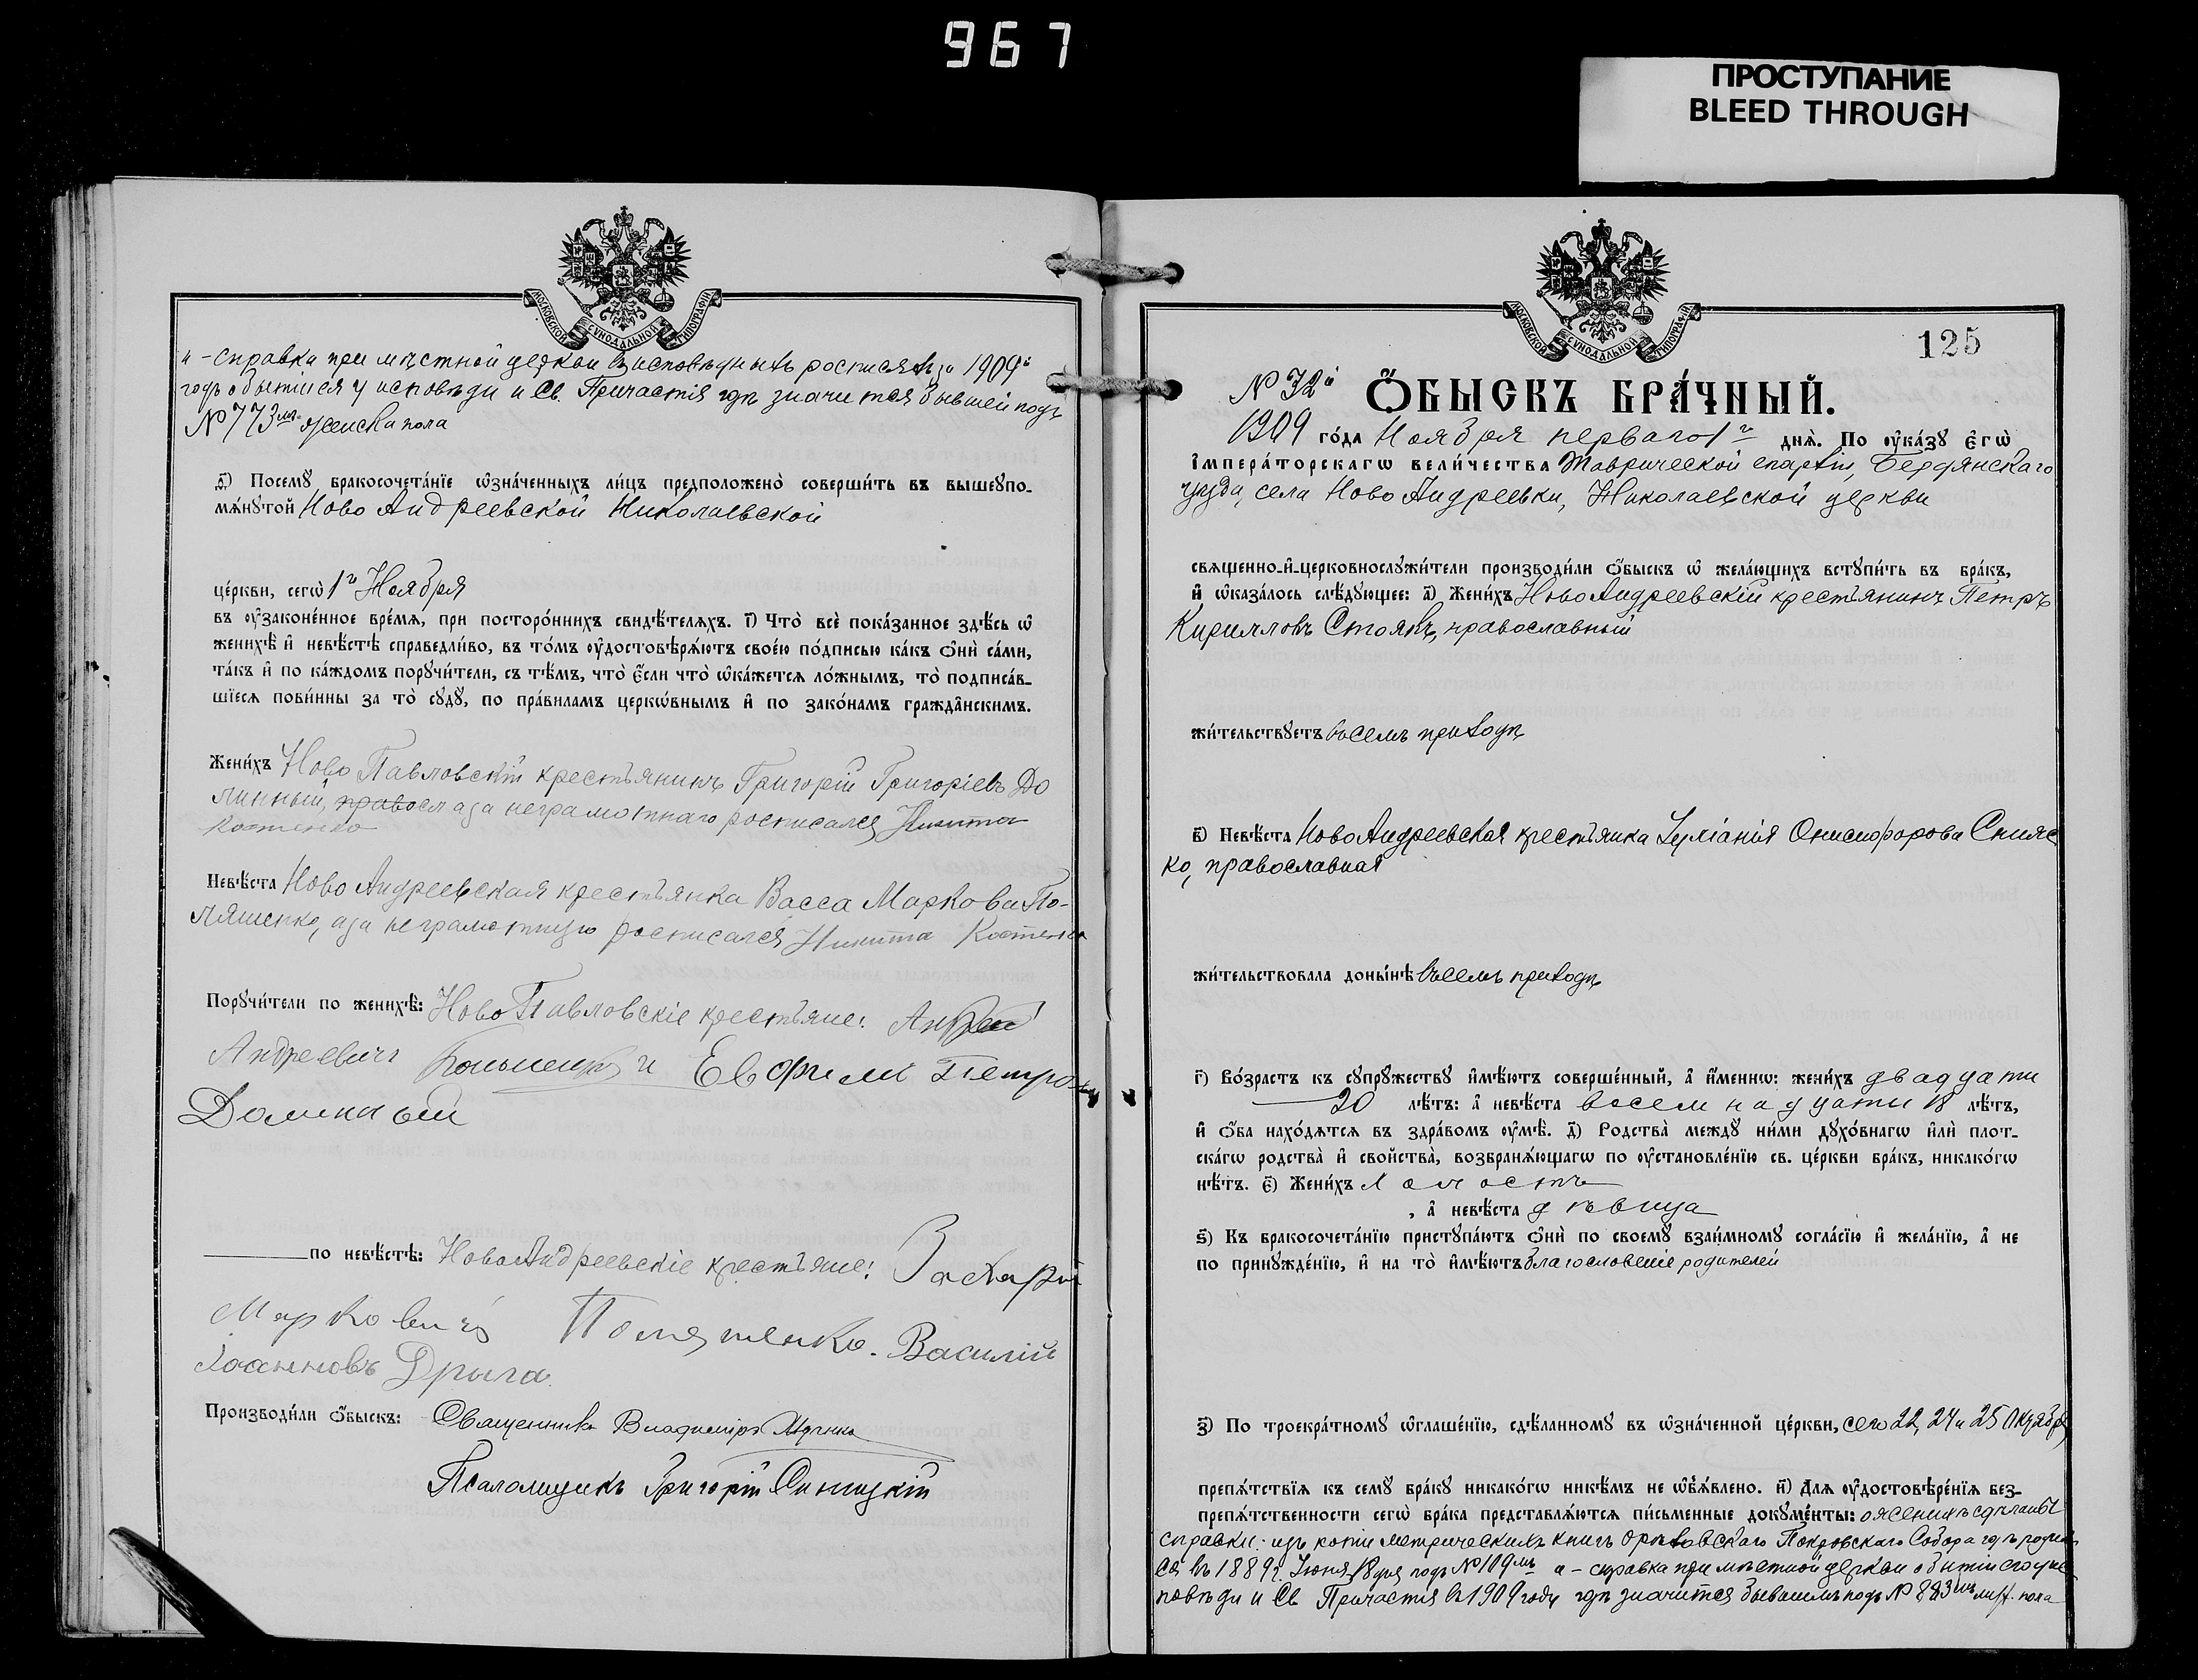 967
ПРОСТУПАНИЕ
BLEED THROUGH
МОСКОВСКОЙ СѴНОДАЛЬНОЙ ТИПОГРАФІИ
и - справка при мѣстной церкви въ исповѣдныхъ росписяхъ за 1909й
годъ о бытіи ея у исповѣди и Св. Причастія гдѣ значится бывшей подъ
№ 773мъ женска пола
д҃) Посемꙋ̀ бракосочета́нїе ѡ҆зна́ченныхъ ли́цъ предположено̀ соверши́ть въ вышеꙋпо-
мѧ́нꙋтой Ново Андреевской Николаевской
це́ркви, сегѡ̀ 1го Ноября
въ оу҆законе́нное вре́мѧ, при посторо́ннихъ свидѣ́телѧхъ. і҃) Что̀ всѐ пока́занное здѣ́сь ѡ҆
женихѣ̀ и҆ невѣ́стѣ справедли́во, въ то́мъ оу҆достовѣрѧ́ютъ свое́ю по́дписью ка́къ ѻ҆нѝ са́ми,
та́къ и҆ по ка́ждомъ порꙋчи́тели, съ тѣ́мъ, что̀ є҆́сли что̀ ѡ҆ка́жетсѧ ло́жнымъ, то̀ подписа́в-
шїесѧ пови́нны за то̀ сꙋдꙋ̀, по пра́виламъ церкѡ́внымъ и҆ по зако́намъ гражда̂нскимъ.
Жени́хъ Ново Павловскій крестьянинъ Григорій Григоріевъ До
линный, правосл а за неграмотнаго росписался Никита
Костенко
Невѣ́ста Ново Андреевская крестьянка Васса Маркова По-
ляшенко, а за неграмотную росписался Никита Костенко
Порꙋчи́тели по женихѣ̀: Ново Павловскіе крестьяне: Андрей
Андреевичъ и Евфимъ Петровъ
Долинный
по невѣ́стѣ: Ново Андреевскіе крестьяне: Захарій
Марковичъ Поляшенко. Василій
Іоанновъ Дрыга.
Производи́ли ѻ҆́быскъ: Священникъ Владиміръ
Псаломщикъ Григорій Синицкій
МОСКОВСКОЙ СѴНОДАЛЬНОЙ ТИПОГРАФІИ
125
№ 32й
Ѻ҆БЫСКЪ БРА́ЧНЫЙ.
1909 го́да Ноября перваго 1го днѧ̀. По оу҆ка́зꙋ є҆гѡ̀
і҆мпера́торскагѡ вели́чества Таврической епархіи, Бердянскаго
уѣзда, села Ново Андреевки, Николаевской церкви
свѧщенно-и҆-церковнослꙋжи́тели производи́ли ѻ҆́быскъ ѡ҆ жела́ющихъ встꙋпи́ть въ бра́къ,
и҆ ѡ҆каза́лось слѣ́дꙋющее: а҃) Жени́хъ Ново Андреевскій крестьянинъ Петръ
Кирилловъ Стоянъ, православный
жи́тельствꙋетъ въ семъ приходѣ
в҃) Невѣ́ста Ново Андреевская крестьянка Іуліанія Онисифорова
ко, православная
жи́тельствовала доны́нѣ въ семъ приходѣ
г҃) Во́зрастъ къ сꙋпрꙋ́жествꙋ и҆мѣ́ютъ соверше́нный, а҆ и҆́меннѡ: жени́хъ двадцати
20 лѣ́тъ: а҆ невѣ́ста восемнадцати 18 лѣ́тъ,
и҆ ѻ҆́ба нахо́дѧтсѧ въ здра́вомъ оу҆мѣ̀. д҃) Родства̀ междꙋ̀ ни́ми дꙋхо́внагѡ и҆лѝ плот-
ска́гѡ родства̀ и҆ свойства̀, возбранѧ́ющагѡ по оу҆становле́нїю св. це́ркви бра́къ, никако́гѡ
нѣ́тъ. є҃) Жени́хъ холостъ
, а҆ невѣ́ста дѣвица
ѕ҃) Къ бракосочета́нїю пристꙋпа́ютъ ѻ҆нѝ по своемꙋ̀ взаи́мномꙋ согла́сїю и҆ жела́нїю, а҆ не
по принꙋжде́нїю, и҆ на то̀ и҆мѣ́ютъ благословеніе родителей
з҃) По троекра́тномꙋ ѡ҆глаше́нїю, сдѣ́ланномꙋ въ ѡ҆зна́ченной це́ркви, сего 22, 24 и 25 Октября
препѧ́тствїѧ къ семꙋ̀ бра́кꙋ никако́гѡ никѣ́мъ не ѡ҆б̾ѧ́влено. и҃) Длѧ̀ оу҆достовѣре́нїѧ без-
препѧ́тственности сегѡ̀ бра́ка представлѧ́ютсѧ пи́сьменные докꙋме́нты: о женихѣ сдѣланы
справки: изъ копіи метрическихъ книгъ Орѣховскаго Покровскаго Собора гдѣ родил
ся въ 1889 г. Іюня 18 дня подъ № 109мъ а - справка при мѣстной церкви о бытіи его у ис
повѣди и Св Причастія въ 1909 году гдѣ значится бывшимъ подъ № 883мъ муж. пола